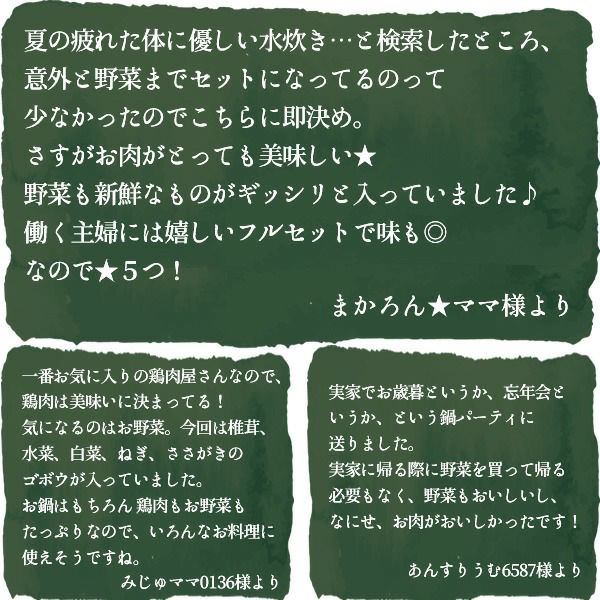 夏の疲れた体に優しい水炊き…と検索したところ、
意外と野菜までセットになってるのって
少なかったのでこちらに即決め。
さすがお肉がとっても美味しい★
野菜も新鮮なものがギッシリと入っていました♪
働く主婦には嬉しいフルセットで味も◎
なので★５つ！
まかろん★ママ様より
一番お気に入りの鶏肉屋さんなので、
鶏肉は美味いに決まってる！
気になるのはお野菜。今回は椎茸、
水菜、白菜、ねぎ、ささがきの
ゴボウが入っていました。
お鍋はもちろん 鶏肉もお野菜も
たっぷりなので、いろんなお料理に
使えそうですね。
みじゅママ0136様より
実家でお歳暮というか、忘年会と
いうか、という鍋パーティに
送りました。
実家に帰る際に野菜を買って帰る
必要もなく、野菜もおいしいし、
なにせ、お肉がおいしかったです！
あんすりうむ6587様より